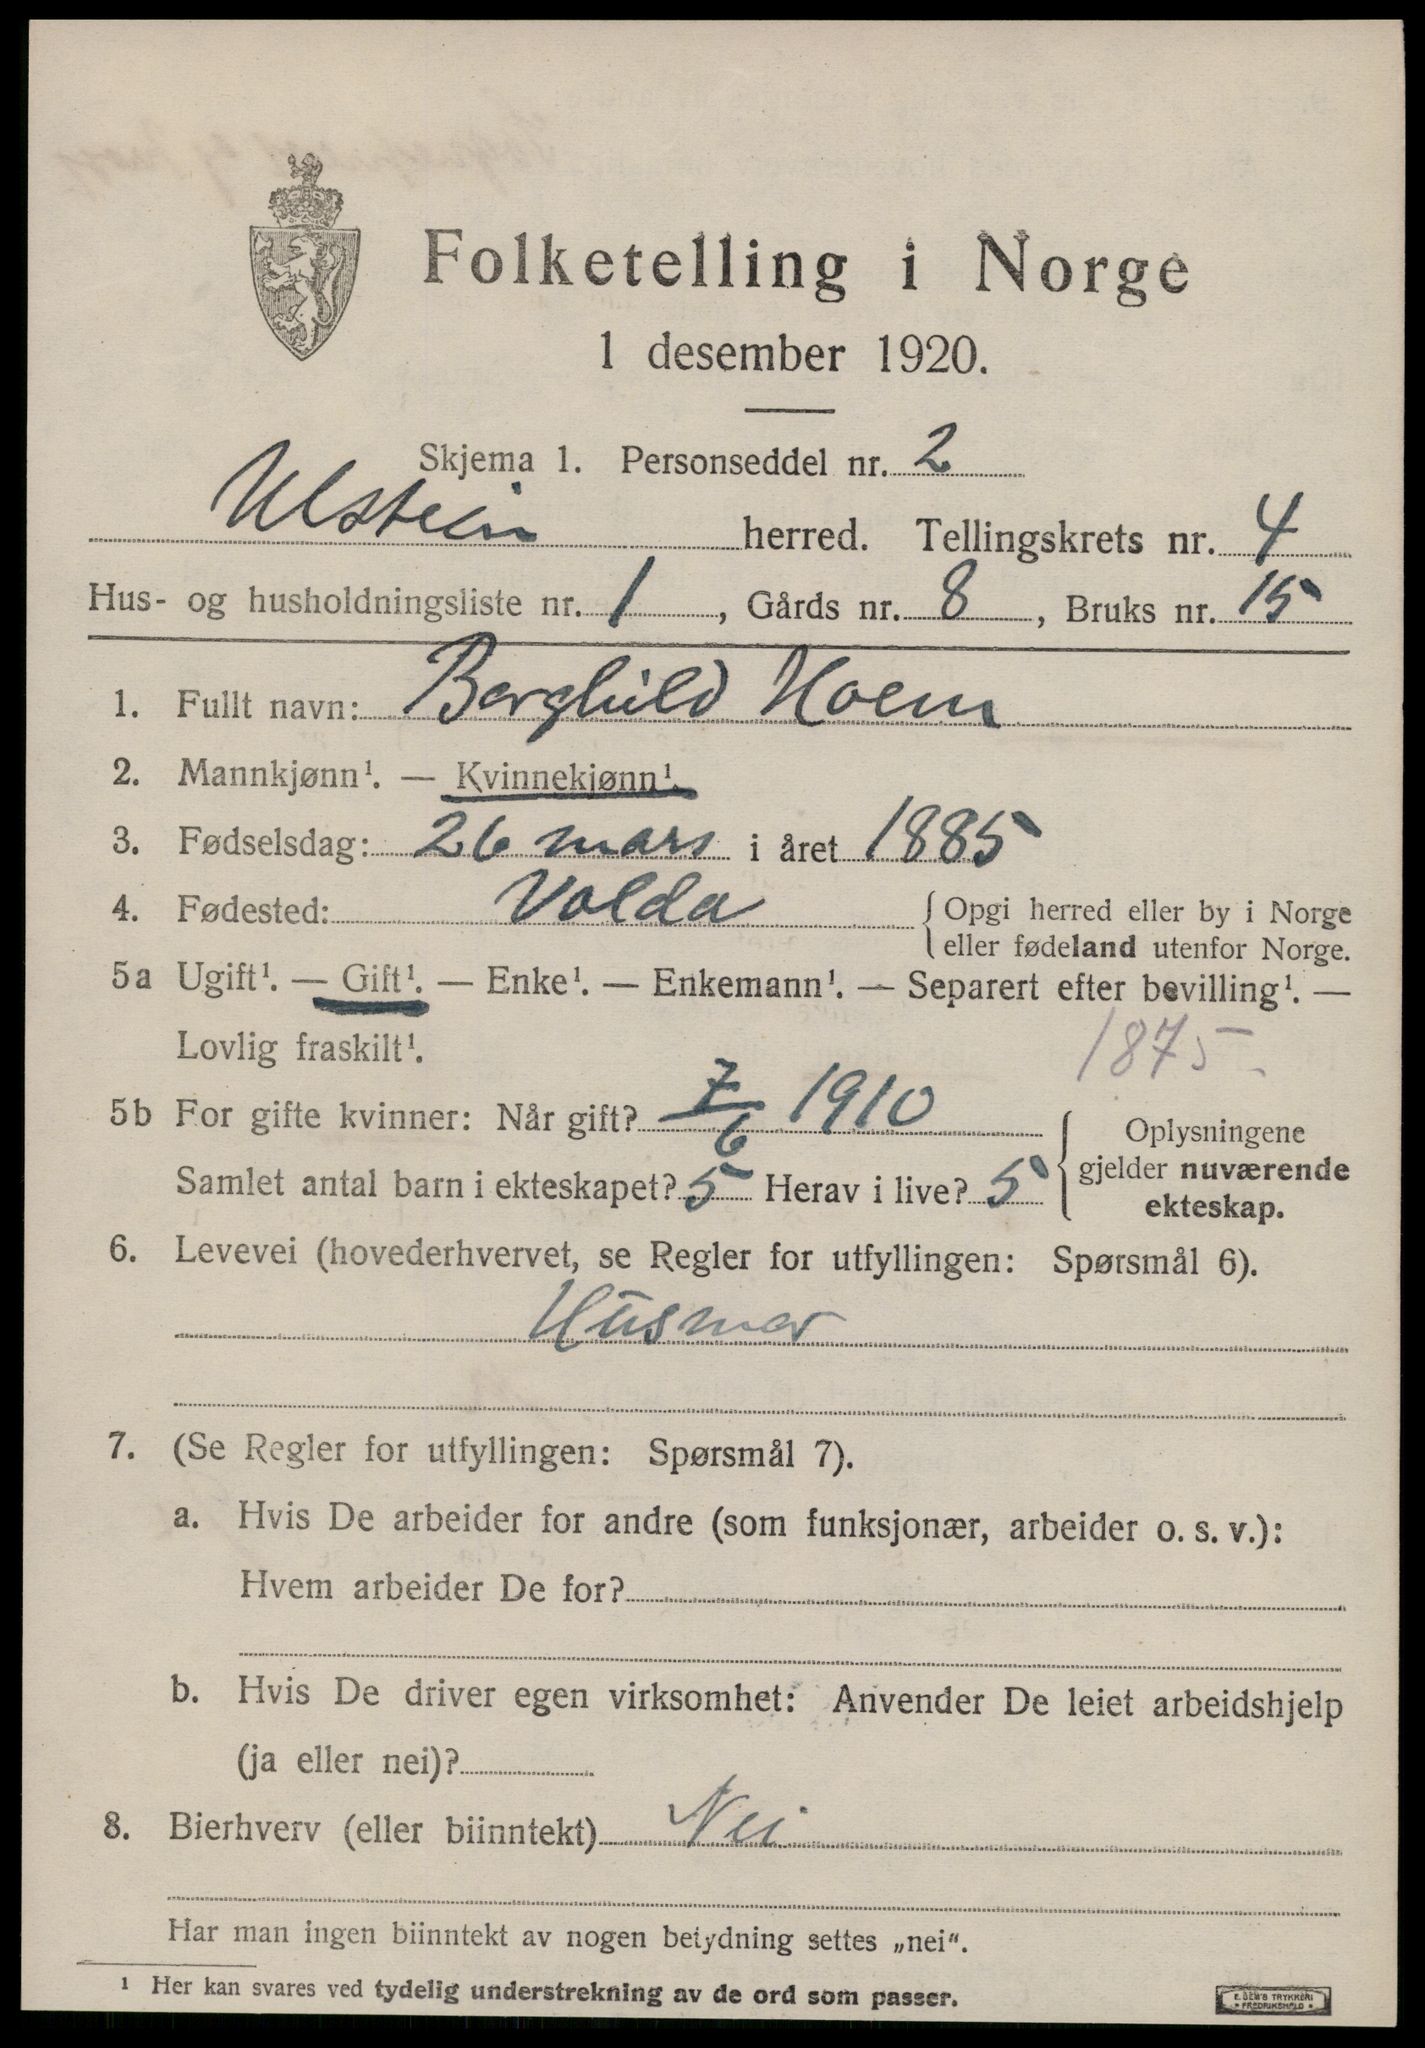 Folketelling i Norge
1 desember 1920.
Skjema 1. Personseddel nr. 2
Ulstein herred. Tellingskrets nr. 4
Hus- og husholdningsliste nr. 1, Gårds nr. 8, Bruks nr. 15
1. Fullt navn: Borghild Hoem
2. Mannkjønn¹. — Kvinnekjønn¹.
3. Fødselsdag: 26 mars i året 1885
4. Fødested: Volda { Opgi herred eller by i Norge
eller fødeland utenfor Norge.
5a Ugift¹. — Gift¹. — Enke¹. — Enkemann¹. — Separert efter bevilling¹. —
Lovlig fraskilt¹.
1875
5b For gifte kvinner: Når gift? 7/6 1910
Samlet antal barn i ekteskapet? 5 Herav i live? 5
Oplysningene
gjelder nuværende
ekteskap.
6. Levevei (hovederhvervet, se Regler for utfyllingen: Spørsmål 6).
Husmor
7. (Se Regler for utfyllingen: Spørsmål 7).
a. Hvis De arbeider for andre (som funksjonær, arbeider o. s. v.):
Hvem arbeider De for?
b. Hvis De driver egen virksomhet: Anvender De leiet arbeidshjelp
(ja eller nei)?
8. Bierhverv (eller biinntekt) Nei
Har man ingen biinntekt av nogen betydning settes „nei“.
¹ Her kan svares ved tydelig understrekning av de ord som passer.
E. SEM'S TRYKKERI
• FREDRIKSHALD •